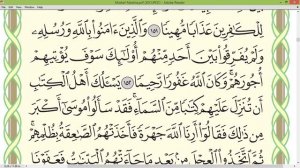 Mushaf Madinah.pdf (SECURED) - Adobe Reader
لِلْكَٰفِرِينَ عَذَابًا مُّهِينًا ١٥١ وَٱلَّذِينَ ءَامَنُوا۟ بِٱللَّهِ وَرُسُلِهِۦ
وَلَمْ يُفَرِّقُوا۟ بَيْنَ أَحَدٍ مِّنْهُمْ أُو۟لَٰٓئِكَ سَوْفَ يُؤْتِيهِمْ
أُجُورَهُمْ وَكَانَ ٱللَّهُ غَفُورًا رَّحِيمًا ١٥٢ يَسْـَٔلُكَ أَهْلُ ٱلْكِتَٰبِ
أَن تُنَزِّلَ عَلَيْهِمْ كِتَٰبًا مِّنَ ٱلسَّمَآءِ فَقَدْ سَأَلُوا۟ مُوسَىٰٓ أَكْبَرَ
مِن ذَٰلِكَ فَقَالُوٓا۟ أَرِنَا ٱللَّهَ جَهْرَةً فَأَخَذَتْهُمُ ٱلصَّٰعِقَةُ بِظُلْمِهِمْ
ثُمَّ ٱتَّخَذُوا۟ ٱلْعِجْلَ مِنۢ بَعْدِ مَا جَآءَتْهُمُ ٱلْبَيِّنَٰتُ فَعَفَوْنَا